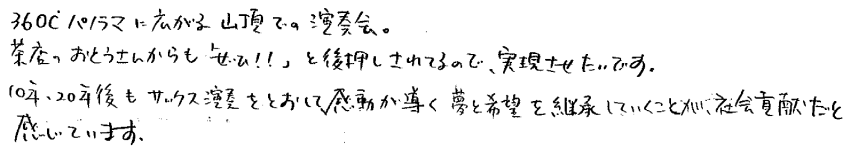 360℃ パノラマに広がる 山頂での演奏会。
茶店のおとうさんからも「ぜひ!!」と後押しされてるので、実現させたいです。
10年、20年後も サックス演奏をとおして感動が導く 夢と希望を継承していくことが、社会貢献だと
感じています。